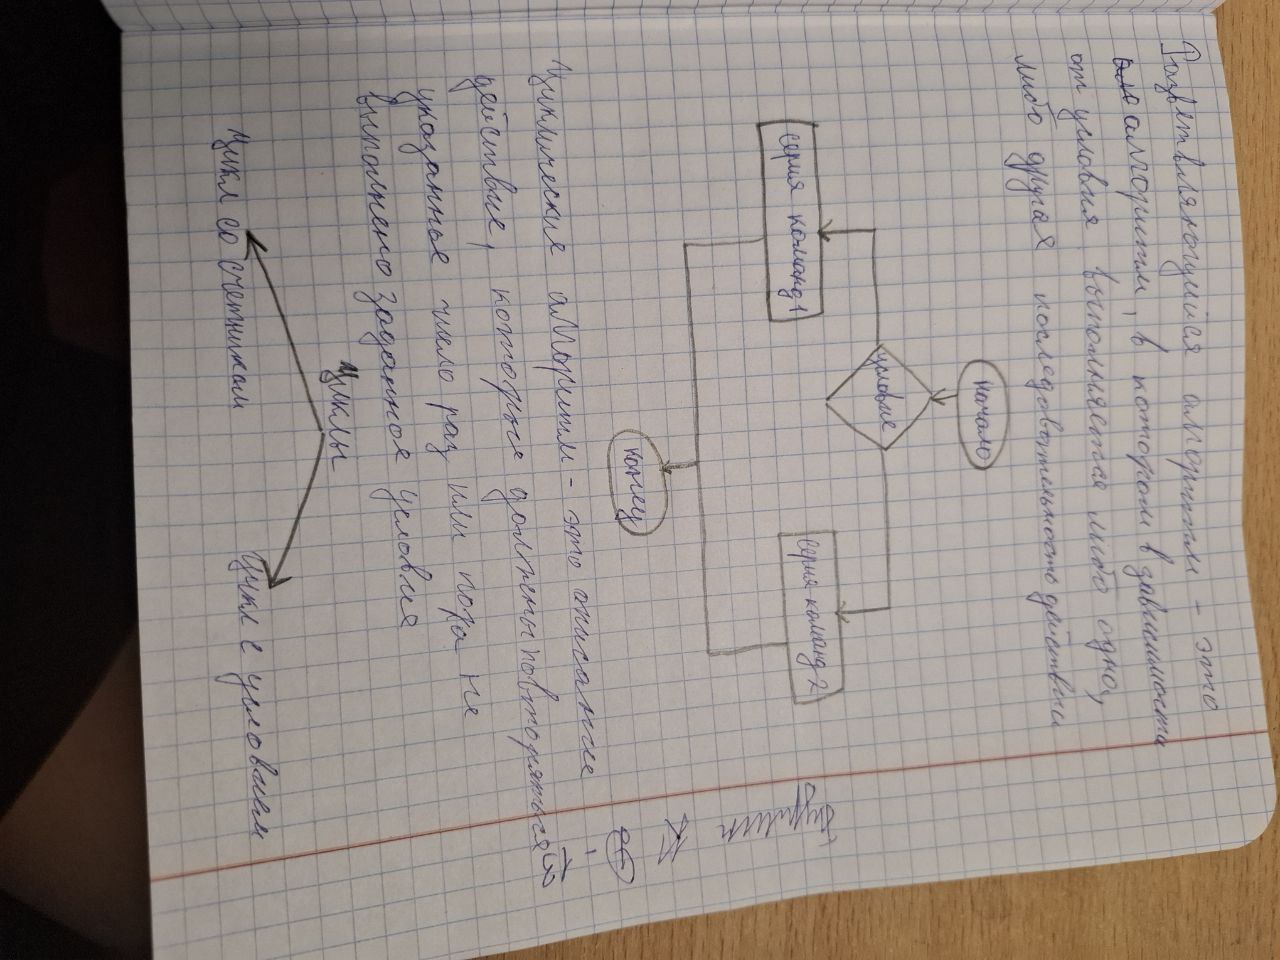 Разветвляющийся алгоритм - это
алгоритм, в котором в зависимости
от условия выполняется либо одна,
либо другая последовательность действий
начало
условие
серия команд 1
серия команд 2
конец
Циклические алгоритм - это описание
действие, которые должны повторяться
указанное число раз или пока не
выполнено заданное условия
Циклы
Цикл со счетчиком
Цикл с условием